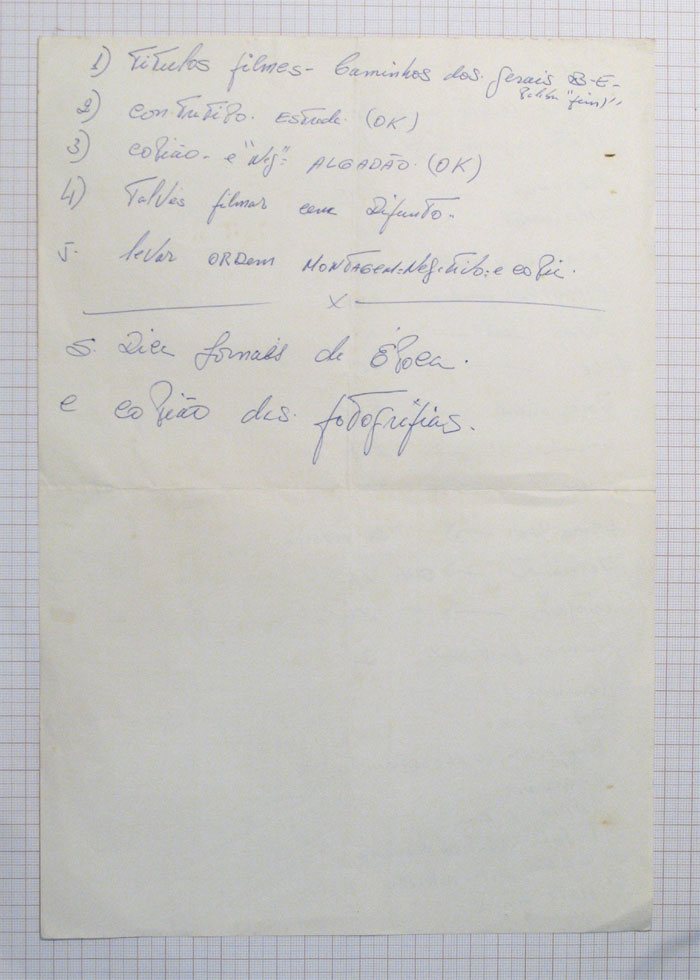 1) Titulos filmes - Caminhos dos gerais B-E-
"fim"
2) contratipo. ESTRADA (OK)
3) copião - e "Neg": ALGADÃO (OK)
4) Talvês filmar cena Difunto -
5. levar ORDem MONTAGEM: Negativo: e copia.
X
5. Dica Jornais da Época.
e copião das fotográfias.